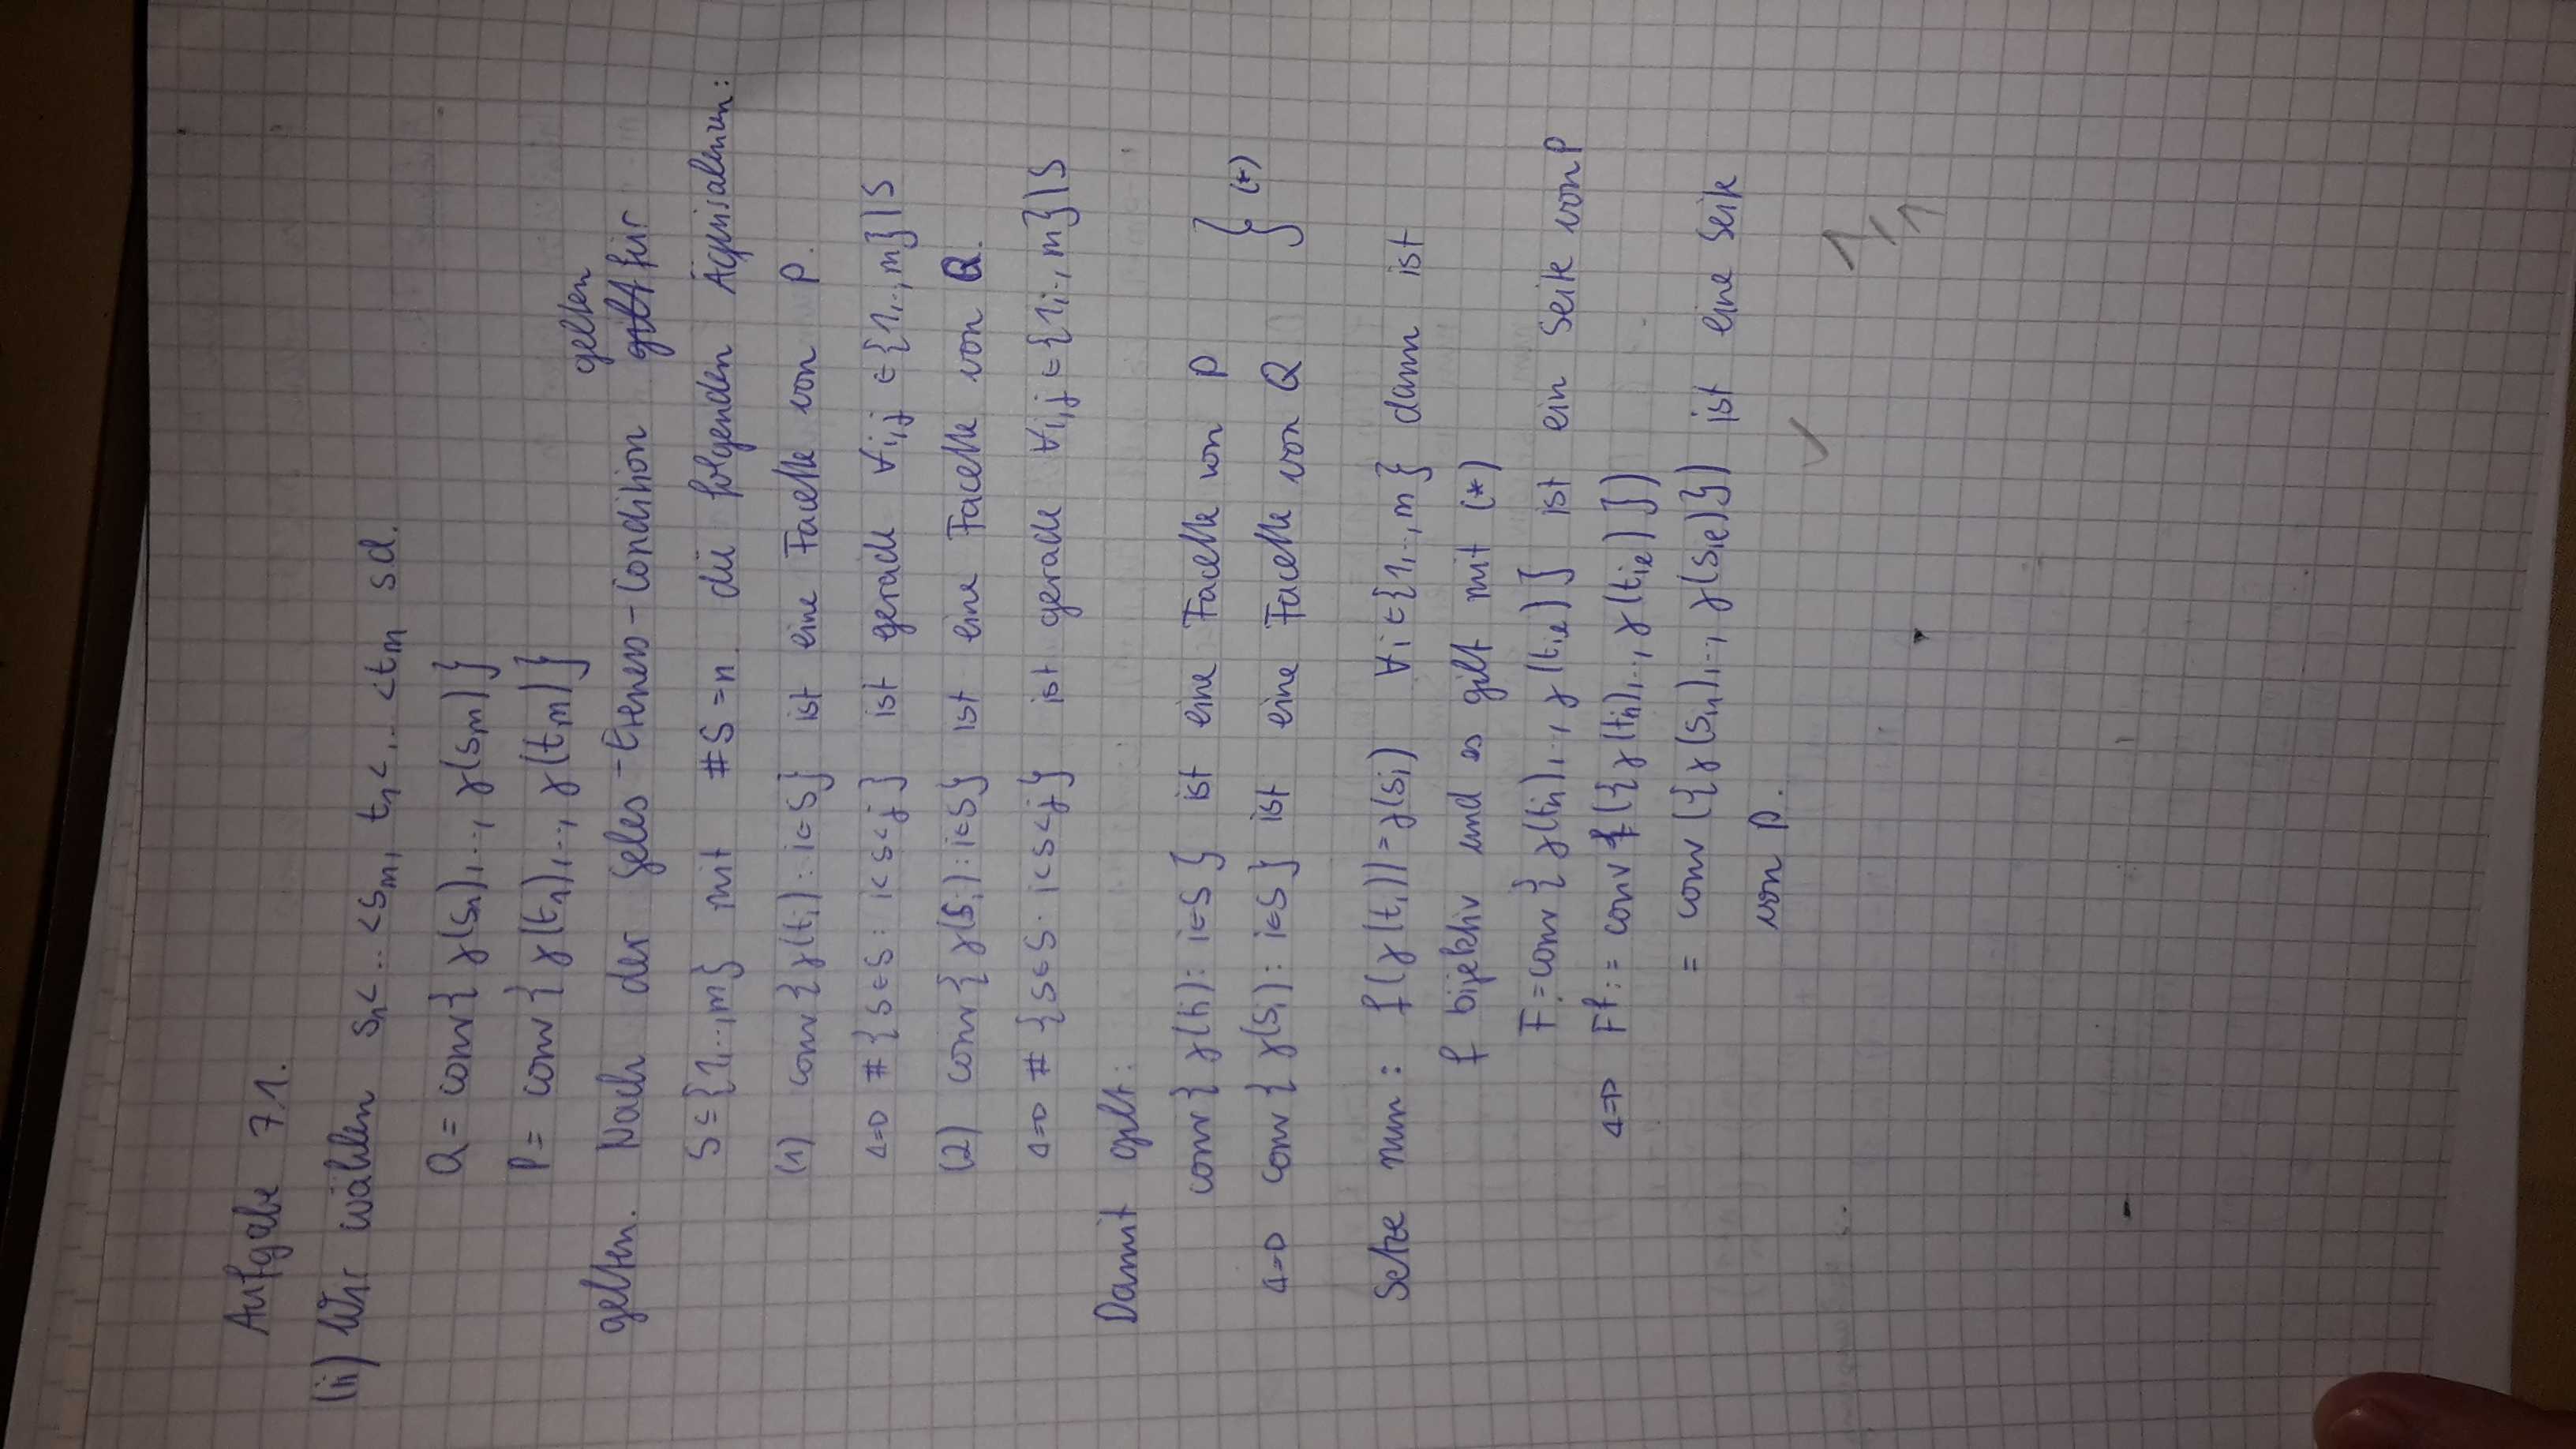 Aufgabe 7.1.
(ii) Wir wählen s₁<..<sₘ, t₁<..<tₘ sd.
Q = conv{γ(s₁),..,γ(sₘ)}
P = conv{γ(t₁),..,γ(tₘ)}
gelten. Nach der Gales-Eveness-Condition gelten für
S⊆{1,..,m} mit #S=n die folgenden Äquivalenzen:
(1) conv{γ(tᵢ): i∈S} ist eine Facette von P.
⇔ #{s∈S: i<s<j} ist gerade ∀i,j ∈{1,..,m}\S
(2) conv{γ(sᵢ): i∈S} ist eine Facette von Q.
⇔ #{s∈S: i<s<j} ist gerade ∀i,j∈{1,..,m}\S
Damit gilt:
conv{γ(tᵢ): i∈S} ist eine Facette von P
⇔ conv{γ(sᵢ): i∈S} ist eine Facette von Q } (*)
Setze nun: f(γ(tᵢ))=γ(sᵢ) ∀i∈{1,..,m} dann ist
f bijektiv und es gilt mit (*)
F:=conv{γ(tᵢ₁),..,γ(tᵢₑ)} ist ein Seite von P
⇔ Fᶠ:= conv f({γ(tᵢ₁),..,γ(tᵢₑ)})
= conv({γ(sᵢ₁),..,γ(sᵢₑ)}) ist eine Seite
von P.
✓ 1/1